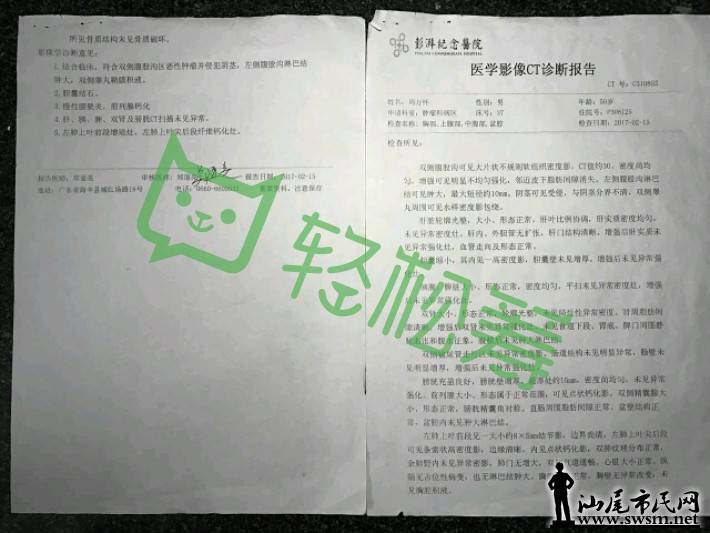 所见骨质结构未见骨质破坏。
影像学诊断意见:
1.结合临床,符合双侧腹股沟区恶性肿瘤并侵犯阴茎,左侧腹股沟淋巴结
肿大,双侧睾丸鞘膜积液。
2.胆囊结石。
3.慢性膀胱炎,前列腺钙化
4.肝、胰、脾、双肾及膀胱CT扫描未见异常。
5.左肺上叶前段增殖灶,左肺上叶尖后段纤维钙化灶。
报告日期:2017-02-15
地址:广东省海丰县城红场路18号
电话:
重要资料,注意保存
轻松筹
彭湃纪念醫院
医学影像CT诊断报告
CT号:
姓名:
性别:男
年龄:50岁
申请科室:肿瘤科病区
床号:37
住院号:P306125
检查名称:胸部,上腹部,中腹部,盆腔
检查日期:2017-02-15
检查所见:
双侧腹股沟可见大片状不规则软组织密度影,CT值约30,密度尚均
匀,增强可见明显不均匀强化,邻近皮下脂肪间隙消失。左侧腹股沟淋巴
结可见肿大,最大短径约10mm,阴茎可见受侵,与阴茎分界不清,双侧睾
丸周围可见水样密度影包绕。
肝脏轮廓光整,大小、形态正常,肝叶比例协调,肝实质密度均匀,
未见异常密度灶,肝内、外胆管无扩张,肝门结构清晰,增强后肝实质未
见异常强化灶,血管走向及形态正常。
胆囊缩小,其内见一高密度影,胆囊壁未见增厚,增强后未见异常强
化灶。
大小、形态正常,密度均匀,平扫未见异常密度灶,增强
后未见异常强化灶。
双肾大小、形态正常,轮廓光整,
肾周脂肪间
隙清晰,增强后双肾未见异常强化灶。未见食道下段、胃底、脾门周围静
未见明显异常,肠壁未
见明显增厚,增强后未见异常强化灶。
膀胱充盈良好,膀胱壁增厚,
约15mm,密度尚均匀,未见异常
强化。前列腺大小、形态属于正常范围,可见点状钙化影。双侧精囊腺大
小、形态正常,膀胱精囊角对称。直肠周围脂肪间隙正常,盆壁结构正
常,盆腔内未见肿大淋巴结。
左肺上叶前段见一大小约8×5mm结节影,边界尚清,左肺上叶尖后段
可见条索状高密度影,边缘清晰,内见点状钙化影,双肺纹理分布正常,
余肺野内未见异常密度影,肺门无增大,
通畅,心脏大小正常,纵
隔无占位性病变,也无淋巴结肿大。
胸壁无异常改变,未
见胸腔积液。
汕尾市民网
www.swsm.net